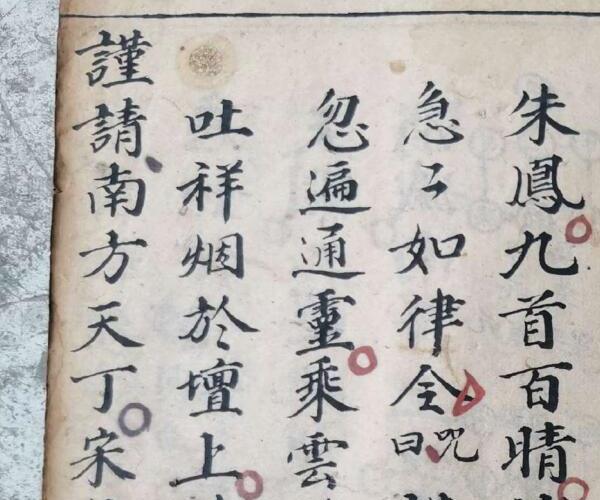 朱鳳九首百晴
急〻如律令咒曰
忽遍通靈乘雲
吐祥烟於壇上
謹請南方天丁宋